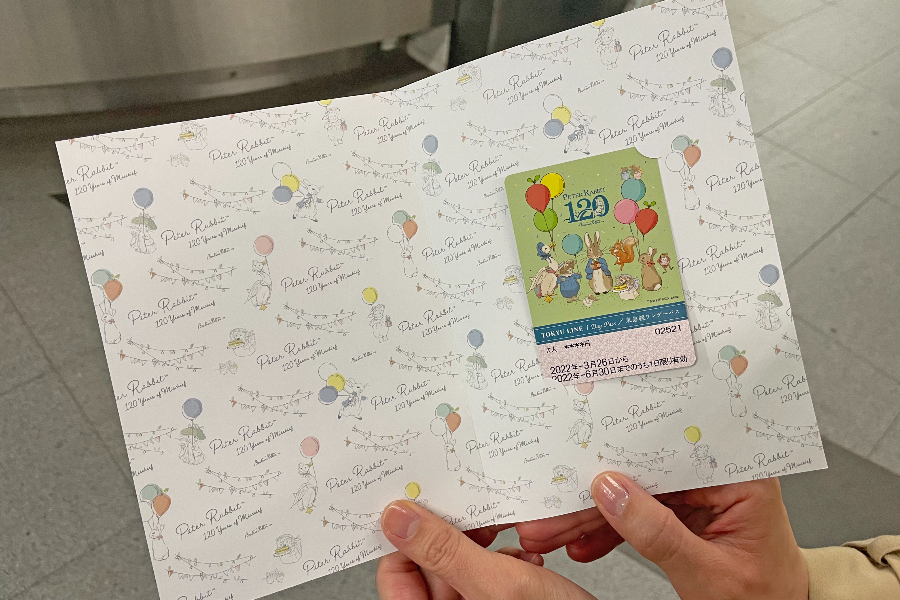 Peter Rabbit™
120 Years of Mischief
PETER RABBIT
120
TOKYU LINE / 1Day Pass / 東急線ワンデーパス
大人 ****円
02521
2022年-3月26日から
2022年-6月30日までのうち1日限り有効